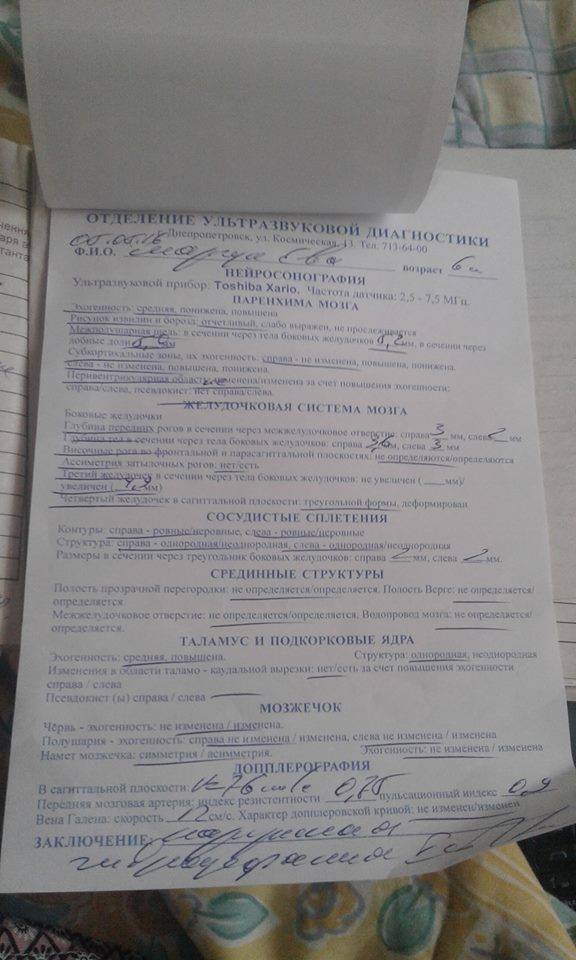 ОТДЕЛЕНИЕ УЛЬТРАЗВУКОВОЙ ДИАГНОСТИКИ
Днепропетровск, ул. Космическая, 13. Тел. 713-64-00
Ф.И.О. Ева возраст 6
НЕЙРОСОНОГРАФИЯ
Ультразвуковой прибор: Toshiba Xario, Частота датчика: 2,5 - 7,5 МГц.
ПАРЕНХИМА МОЗГА
Эхогенность: средняя, понижена, повышена
Рисунок извилин и борозд: отчетливый, слабо выражен, не прослеживается
Межполушарная щель: в сечении через тела боковых желудочков мм, в сечении через
лобные доли мм
Субкортикальные зоны, их эхогенность: справа - не изменена, повышена, понижена.
слева - не изменена, повышена, понижена.
Перивентрикулярная область: изменена за счет повышения эхогенности:
справа/слева, псевдокист: нет справа/слева.
ЖЕЛУДОЧКОВАЯ СИСТЕМА МОЗГА
Боковые желудочки
Глубина передних рогов в сечении через межжелудочковое отверстие: справа 3 мм, слева 2 мм
Глубина тел в сечении через тела боковых желудочков: справа мм, слева 3 мм
Височные рога во фронтальной и парасагиттальной плоскостях: не определяются/определяются
Ассиметрия затылочных рогов: нет/есть
Третий желудочек в сечении через тела боковых желудочков: не увеличен ( мм)/
увеличен ( мм)
Четвертый желудочек в сагиттальной плоскости: треугольной формы, деформирован
СОСУДИСТЫЕ СПЛЕТЕНИЯ
Контуры: справа - ровные/неровные, слева - ровные/неровные
Структура: справа - однородная/неоднородная, слева - однородная/неоднородная
Размеры в сечении через треугольник боковых желудочков: справа 2 мм, слева 2 мм.
СРЕДИННЫЕ СТРУКТУРЫ
Полость прозрачной перегородки: не определяется/определяется. Полость Верге: не определяется/
определяется
Межжелудочковое отверстие: не определяется/определяется. Водопровод мозга: не определяется/
определяется.
ТАЛАМУС И ПОДКОРКОВЫЕ ЯДРА
Эхогенность: средняя, повышена. Структура: однородная, неоднородная
Изменения в области таламо - каудальной вырезки: нет/есть за счет повышения эхогенности
справа / слева
Псевдокист (ы) справа / слева
МОЗЖЕЧОК
Червь - эхогенность: не изменена / изменена.
Полушария - эхогенность: справа не изменена / изменена, слева не изменена / изменена
Намет мозжечка: симметрия / асиметрия. Эхогенность: не изменена / изменена
ДОППЛЕРОГРАФИЯ
В сагиттальной плоскости
Передняя мозговая артерия: индекс резистентности пульсационный индекс 0,9
Вена Галена: скорость 12 см/с. Характер допплеровской кривой: не изменен/изменен
ЗАКЛЮЧЕНИЕ: наружная
гидроцефалия